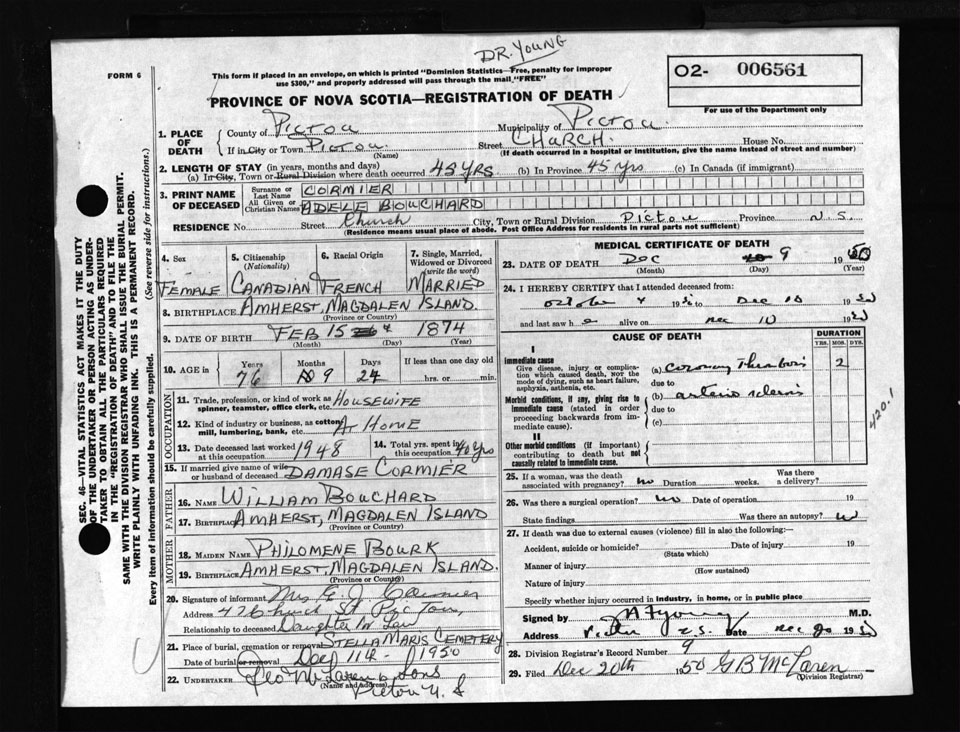 DR. YOUNG
FORM 6
This form if placed in an envelope, on which is printed "Dominion Statistics—Free, penalty for improper
use $300," and properly addressed will pass through the mail "FREE"
O2- 006561
For use of the Department only
PROVINCE OF NOVA SCOTIA—REGISTRATION OF DEATH
1. PLACE OF DEATH
County of Pictou Municipality of Pictou
If in City or Town Pictou Street CHURCH. House No.
(Name) (If death occurred in a hospital or institution, give the name instead of street and number)
2. LENGTH OF STAY (in years, months and days)
(a) In City, Town or Rural Division where death occurred 45 YRS (b) In Province 45 yrs (c) In Canada (if immigrant)
3. PRINT NAME OF DECEASED
Surname or Last Name CORMIER
All Given or Christian Names ADELE BOUCHARD
RESIDENCE No. Street Church City, Town or Rural Division Pictou Province N.S.
(Residence means usual place of abode. Post Office Address for residents in rural parts not sufficient)
4. Sex 5. Citizenship (Nationality) 6. Racial Origin 7. Single, Married, Widowed or Divorced (write the word)
FEMALE CANADIAN FRENCH MARRIED
8. BIRTHPLACE AMHERST, MAGDALEN ISLAND.
(Province or Country)
9. DATE OF BIRTH FEB 15 1874
(Month) (Day) (Year)
10. AGE in Years Months Days If less than one day old
76 9 24 hrs. or min.
OCCUPATION
11. Trade, profession, or kind of work as spinner, teamster, office clerk, etc. HOUSEWIFE
12. Kind of industry or business, as cotton mill, lumbering, bank, etc. AT HOME
13. Date deceased last worked at this occupation 1948 14. Total yrs. spent in this occupation 40 yrs
15. If married give name of wife or husband of deceased DAMASE CORMIER
FATHER
16. NAME WILLIAM BOUCHARD
17. BIRTHPLACE AMHERST, MAGDALEN ISLAND
(Province or Country)
MOTHER
18. MAIDEN NAME PHILOMENE BOURK
19. BIRTHPLACE AMHERST, MAGDALEN ISLAND.
(Province or Country)
20. Signature of informant Mrs
Address St Pictou
Relationship to deceased Daughter In Law
21. Place of burial, cremation or removal STELLA MARIS CEMETERY
Date of burial or removal Dec 11th 1950
22. UNDERTAKER Leo McLaren & Sons
(Name and address)
Pictou N. S
MEDICAL CERTIFICATE OF DEATH
23. DATE OF DEATH Dec 9 1950
(Month) (Day) (Year)
24. I HEREBY CERTIFY that I attended deceased from:
October 4 1950 to Dec 10 1950
and last saw h e alive on Dec 10 1950
CAUSE OF DEATH
DURATION
YRS. MOS. DYS.
I
Immediate cause
Give disease, injury or complication which caused death, NOT the mode of dying, such as heart failure, asphyxia, asthenia, etc.
(a) coronary Thrombosis 2
due to
Morbid conditions, if any, giving rise to immediate cause (stated in order proceeding backwards from immediate cause).
(b) arterio sclerosis
due to
(c)
II
Other morbid conditions (if important) contributing to death but not causally related to immediate cause.
420.1
25. If a woman, was the death associated with pregnancy? no Duration weeks. Was there a delivery?
26. Was there a surgical operation? no Date of operation 19
State findings Was there an autopsy? no
27. If death was due to external causes (violence) fill in also the following:—
Accident, suicide or homicide? Date of injury 19
(State which)
Manner of injury
(How sustained)
Nature of injury
Specify whether injury occurred in industry, in home, or in public place
Signed by Young M.D.
Address Pictou N.S. Date Dec 20 1950
28. Division Registrar's Record Number 9
29. Filed Dec 20th 1950 G B McLaren
(Division Registrar)
SEC. 46—VITAL STATISTICS ACT MAKES IT THE DUTY
OF THE UNDERTAKER OR PERSON ACTING AS UNDERTAKER
TO OBTAIN ALL THE PARTICULARS REQUIRED
IN THE "REGISTRATION OF DEATH" AND TO FILE THE
SAME WITH THE DIVISION REGISTRAR WHO SHALL ISSUE THE BURIAL PERMIT.
WRITE PLAINLY WITH UNFADING INK. THIS IS A PERMANENT RECORD.
Every item of information should be carefully supplied. (See reverse side for instructions.)